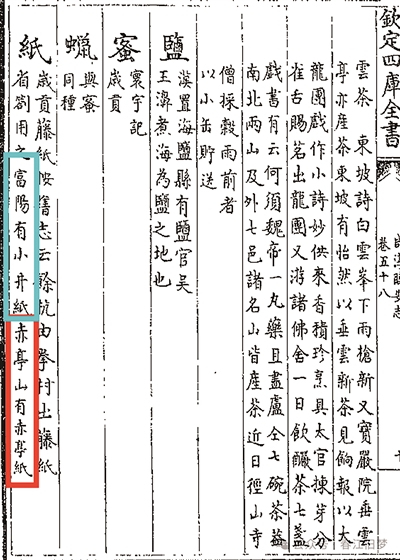 欽定四庫全書
卷五十八
雲茶 東坡詩白雲峯下雨槍新又寶嚴院垂雲
亭亦產茶東坡有怡然以垂雲新茶見餉報以大
龍團戲作小詩妙供來香積珍烹具太官揀芽分
雀舌賜茗出龍團又游諸佛舍一日飲釅茶七盞
戲書有云何須魏帝一丸藥且盡盧仝七碗茶蓋
南北兩山及外七邑諸名山皆產茶近日徑山寺
僧採穀雨前者
以小缶貯送
鹽 漢置海鹽縣有鹽官吳
王濞煮海為鹽之地也
蜜 寰宇記
歲貢
蠟 與蜜
同種
紙 歲貢藤紙按舊志云餘杭由拳村出藤紙
省劄用之富陽有小井紙赤亭山有赤亭紙